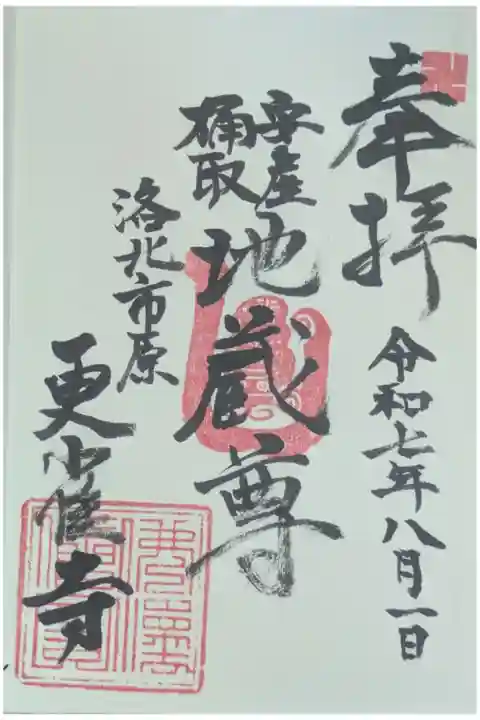 奉拝
令和七年八月一日
安産
桶取
地蔵尊
洛北市原
更雀寺